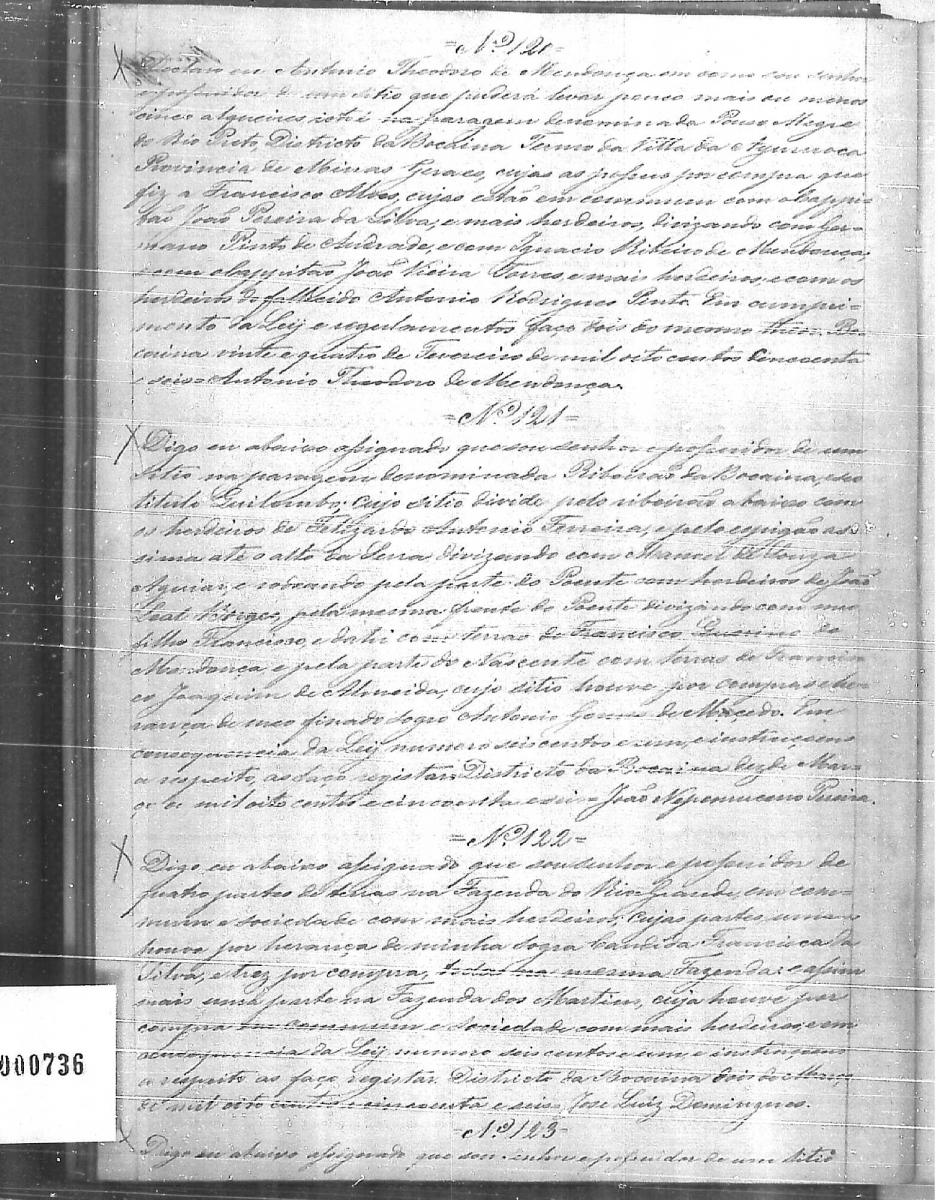 =Nº 120=
Declaro eu Antonio Theodoro de Mendonça em como sou senhor
e possuidor de um sitio que puderá levar pouco mais ou menos
cinco alqueires isto é na paragem denominada Pouso Alegre
do Rio Preto, Districto da Bocaina Termo da Villa da Ayuruoca
Provincia de Minas Geraes, cujas as possuo por compra que
fiz a Francisco Alves, cujas estão em commum com o Cappi-
tão João Pereira da Silva, e mais herdeiros, divizando com Ger-
mano Pinto de Andrade, e com Ignacio Ribeiro de Mendonça
e com Cappitão João Vieira Torres, e mais herdeiros, e com os
herdeiros do fallecido Antonio Rodrigues Pinto. Em cumpri-
mento da Ley e regulamentos faço dois do mesmo theor. Bo-
caina vinte e quatro de Fevereiro de mil oito centos cincoenta
e seis = Antonio Theodoro de Mendonça.
=Nº 121=
Digo eu abaixo assignado que sou senhor e possuidor de um
sitio na paragem denominada Ribeirão da Bocaina, e seo
titulo Quilombo; cujo sitio divide pelo ribeirão abaixo com
os herdeiros de Felizardo Antonio Ferreira, e pelo espigão as-
sima até o alto da Serra divizando com Manoel de Souza
Aguiar, e rodeando pela parte do Poente com herdeiros de João
Leal Borges, pela mesma frente do Poente divizando com meo
filho Francisco, e dahi com terras de Francisco Querino de
Mendonça e pela parte do Nascente com terras de Francis-
co Joaquim de Almeida, cujo sitio houve por compras e he-
rança de meo finado sogro Antonio Gomes de Macedo. Em
consequencia da Ley numero seis centos e um, e instruçoens
a respeito, as faço registar. Districto da Bocaina dez de Mar-
ço de mil oito centos e cincoenta e seis = João Nepomuceno Pereira.
=Nº 122=
Digo eu abaixo assignado que sou senhor e possuidor de
quatro partes de terras na Fazenda do Rio Grande, em com-
mum e sociedade com mais herdeiros; cujas partes, uma
houve por herança de minha sogra Candida Francisca da
Silva, e trez por compra, todas na mesma Fazenda: e assim
mais uma parte na Fazenda dos Martins, cuja houve por
compra em commum e sociedade com mais herdeiros, e em
consequencia da Ley numero seis centos e um e instruçoens
a respeito as faço registar. Districto da Bocaina dois de Março
de mil oito centos e cincoenta e seis = Jose Luiz Domingues.
=Nº 123=
Digo eu abaixo assignado que sou senhor e possuidor de um sitio
000736